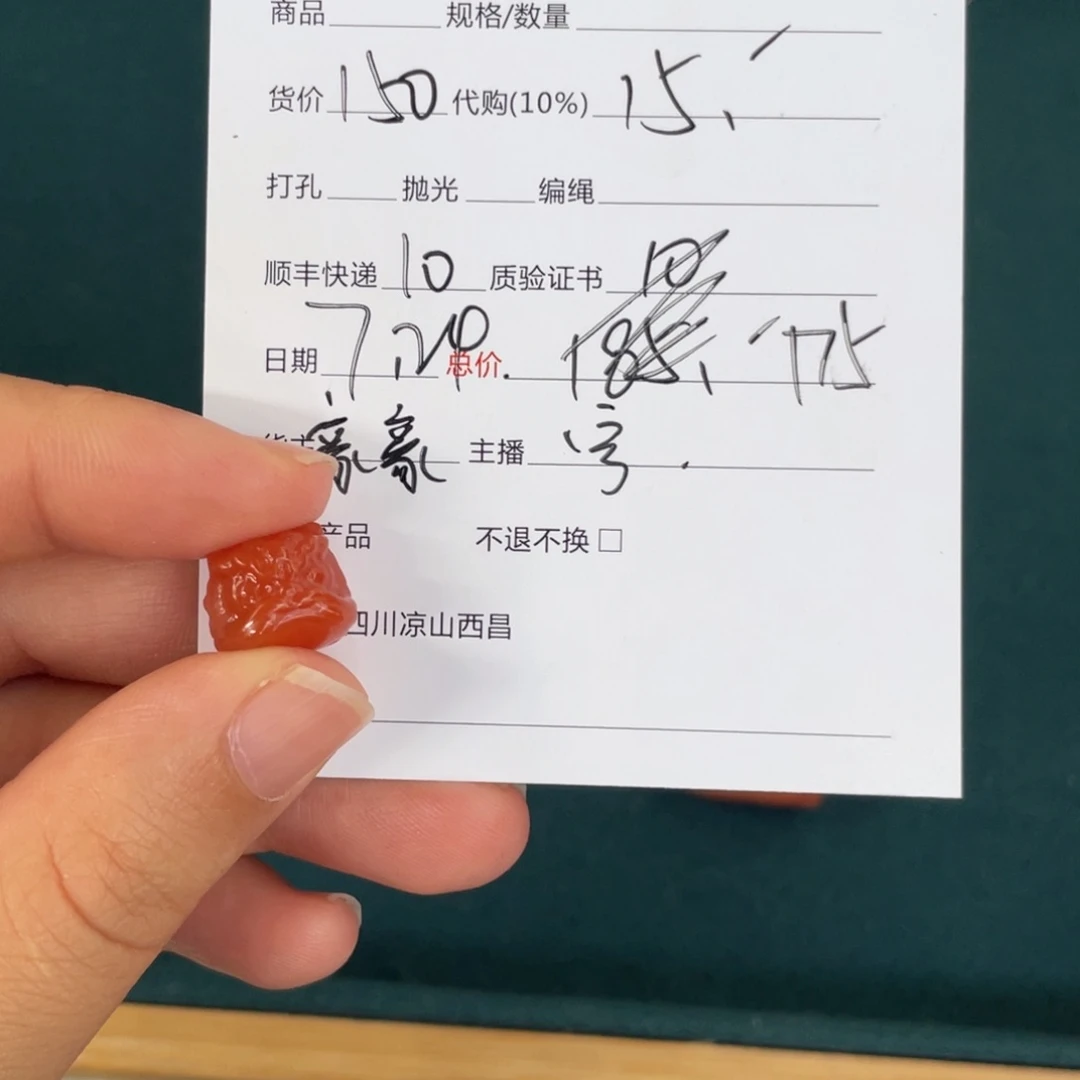 商品 规格/数量
货价 150 代购(10%) 15.
打孔 抛光 编绳
顺丰快递 10 质验证书 10
日期 7.20 总价. 185. 175
货主 象象 主播
产品 不退不换 □
四川凉山西昌